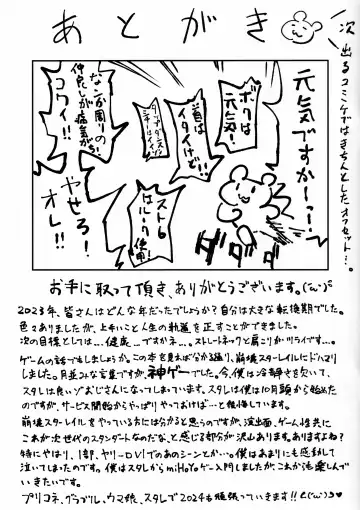 あとがき
次出るコミケではきちんとしたオフセで…。
元気ですかーっ!
ボクは元気!
首はイタイけど!!
スト6はルーク使用!
なンか周りの仲良しが病気がちコワイ!!
やせろ!オレ!!
ダダダ
お手に取って頂き、ありがとうございます。(´ω`)
2023年、皆さんはどんな年だったでしょうか?自分は大きな転換期でした。
色々ありましたが、上手いこと人生の軌道を正すことができました。
次の目標としては…健康…ですかネ…。ストレートネックと肩こりがツライです…。
ゲームの話でもしましょうか。この本を見れば分かる通り、崩壊スターレイルにドハマリ
しました。月並みな言葉ですが、神ゲーでした。今、僕は冷静さを欠いて、
スタレは良いゾおじさんになってしまっています。スタレは僕は10月頭から始めた
のですが、サービス開始からやっぱりやっておけば…と後悔しています。
崩壊スターレイルをやっている方には分かると思うのですが、演出面、ゲーム性共に
これが次世代のスタンダードなのだな、と感じる部分が沢山あります。ありますよね?
特にやはり、1部、ヤリーロVIでのあのシーンとか…。僕はあまりにも感動して
泣いてしまったのです。僕はスタレからmiHoYoゲー入門しましたが、これからも楽しんで
いきたいです。
プリコネ、グラブル、ウマ娘、スタレで2024も頑張っていきます!!(´ω`)